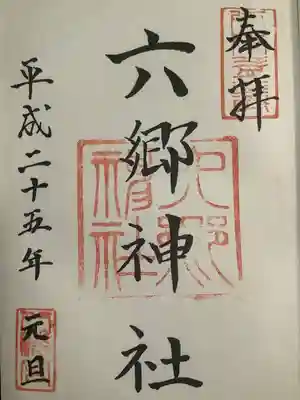 奉拝
六郷神社
平成二十五年
元旦
六郷神社